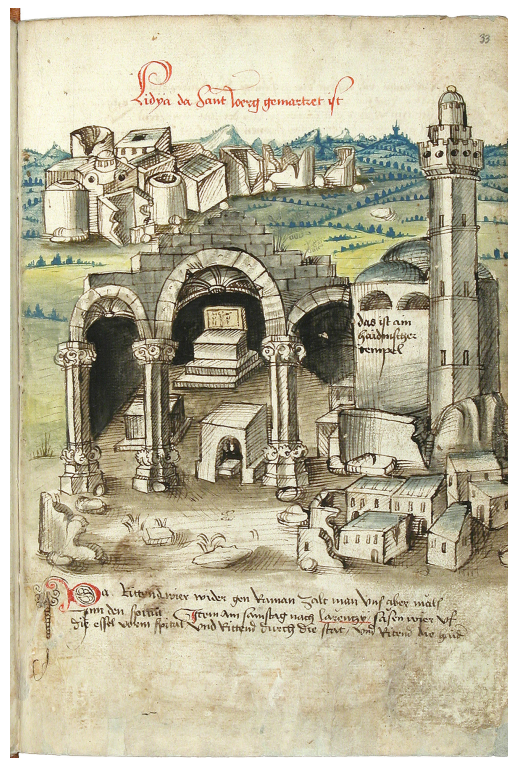 33
Lidya da sant Joerg gemartret ist
das ist ain
haidinscher
tempel
Da Rittend wier wider gen Raman zalt man unß aber mals
jnn den spital Item am samstag nach larentze sasen wier uf
die essel vorem spital Und Rittend durch die stat und Rittend die